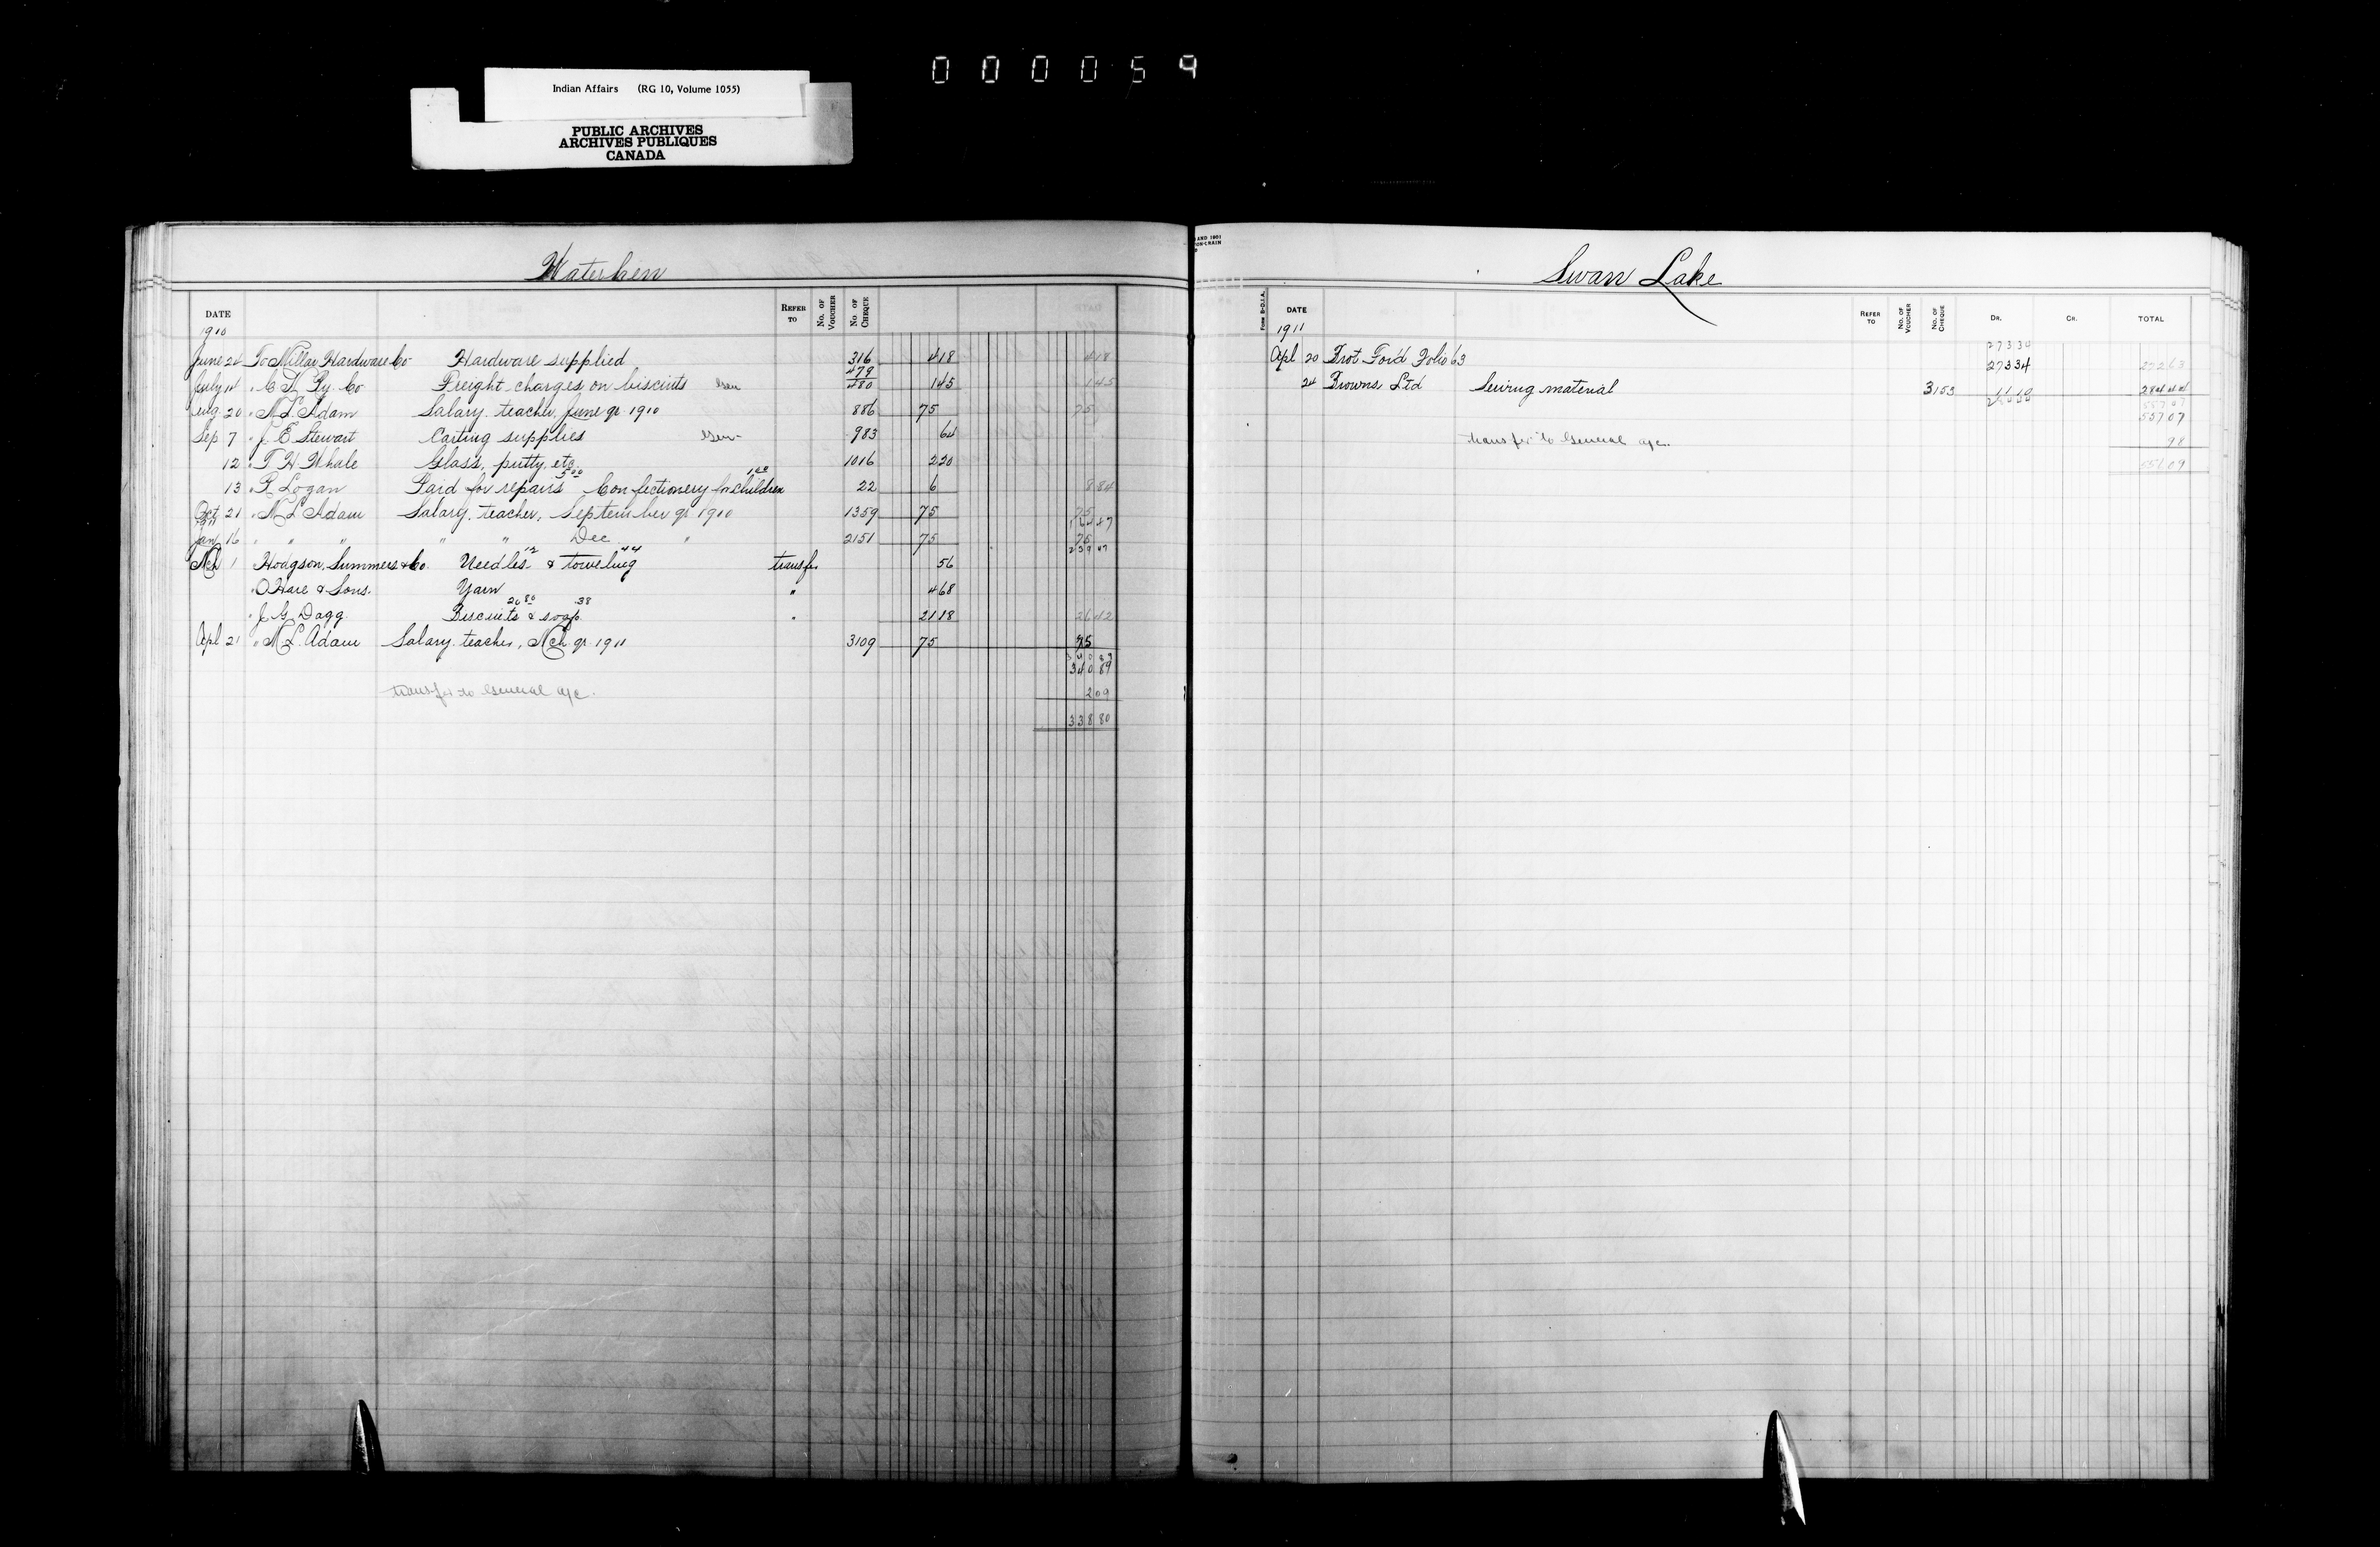 000059
Indian Affairs (RG 10, Volume 1055)
PUBLIC ARCHIVES
ARCHIVES PUBLIQUES
CANADA
Waterhen
DATE REFER TO No. OF VOUCHER No OF CHEQUE
1910
June 24 To Millar Hardware Co Hardware supplied 316 4 18 4 18
479
July 14 " C N Ry. Co Freight charges on biscuits Gen 480 1 45 1 45
Aug 20 " M L Adam Salary, teacher, June qr 1910 886 75 75
Sep 7 " J. E Stewart Carting supplies Gen 983 64
12 " T H Whale Glass, putty, etc. 1016 2 20
5.00 1.00
13 " R Logan Paid for repairs Confectionery for children 22 6 8 84
Oct 21 " M L Adam Salary, teacher, September qr 1910 1359 75 75
1911 164 47
Jan 16 " " " " Dec " 2151 75 75
12 44 239 47
Mch 1 Hodgson, Summers & Co. Needles & toweling transfer 56
" O'Hare & Sons. Yarn " 4 68
20 80 .38
" J. G. Dagg. Biscuits & soap " 21 18 26 42
Apl 21 " M. L. Adam Salary, teacher, Mch qr 1911 3109 75 75
340 89
340 89
transfer to General a/c. 2 09
338 80
Swan Lake
Form B-D.I.A. DATE REFER TO No. OF VOUCHER No. OF CHEQUE DR. CR. TOTAL
1911
273 34
Apl 20 Brot For'd Folio 63 273 34 272 63
24 Browns Ltd Sewing material 3153 284 44
557 07
557 07
transfer to General a/c. 98
556 09